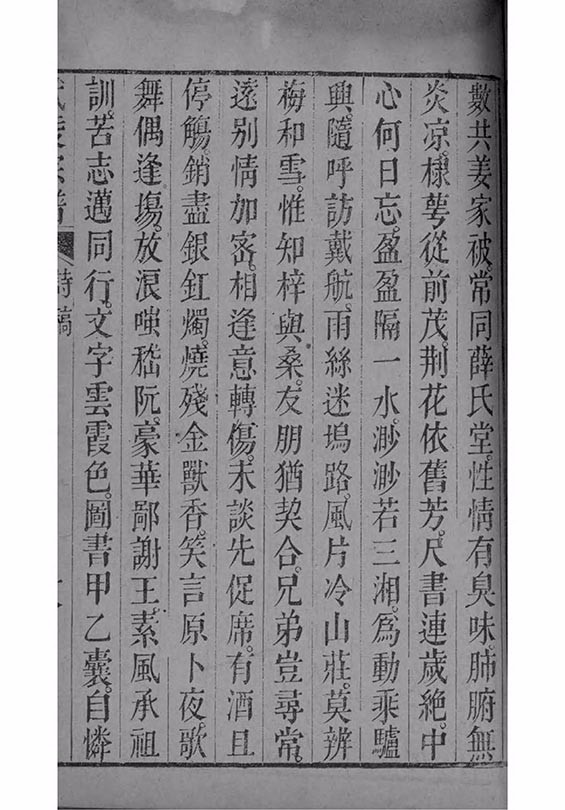 數共姜家被。常同薛氏堂。性情有臭味。肺腑無
炎凉。棣萼從前茂。荆花依舊芳。尺書連歲絶。中
心何日忘。盈盈隔一水。渺渺若三湘。爲動乘驢
興。隨呼訪戴航。雨絲迷塢路。風片冷山莊。莫辨
梅和雪。惟知梓與桑。友朋猶契合。兄弟豈尋常。
遠别情加密。相逢意轉傷。未談先促席。有酒且
停觴。銷盡銀釭燭。燒殘金獸香。笑言原卜夜。歌
舞偶逢塲。放浪嗤嵇阮。豪華鄙謝王。素風承祖
訓。苦志邁同行。文字雲霞色。圖書甲乙囊。自憐
詩稿